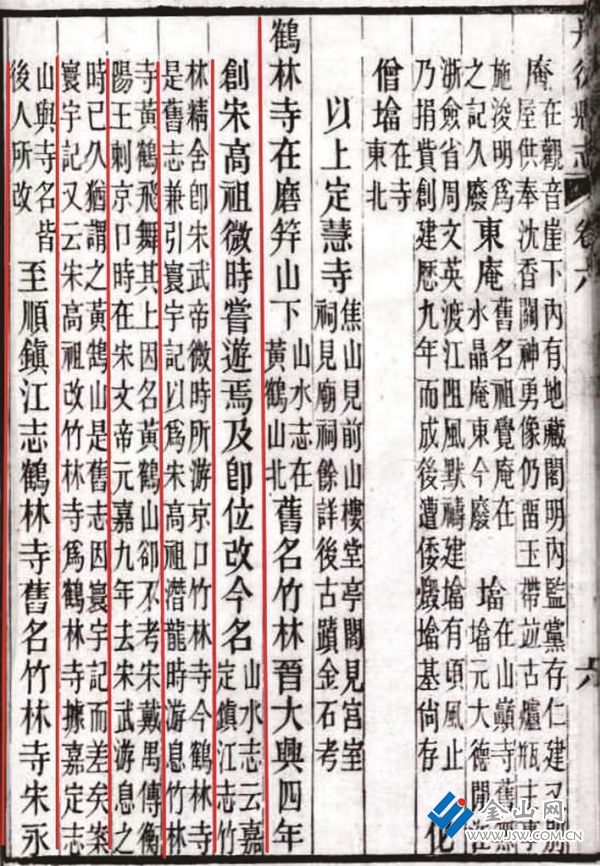 丹徒縣志 卷六 六
庵在觀音崖下內有地藏閣明內監黨存仁建又別
屋供奉沈香關神勇像仍畱玉帶竝古爐瓶
施浚明爲
之記久廢
東庵舊名祖覺庵在
水晶庵東今廢
塔在山巔寺舊無
塔元大德間住
浙僉省周文英渡江阻風默禱建塔有頃風止
乃捐貲創建歷九年而成後遭倭燬塔基尙存
化
僧塔在寺
東北
以上定慧寺焦山見前山樓堂亭閣見宮室
祠見廟祠餘詳後古蹟金石考
鶴林寺在磨筓山下山水志在
黃鶴山北
舊名竹林晉大興四年
創宋高祖微時嘗遊焉及卽位改今名山水志云嘉
定鎮江志竹
林精舍卽宋武帝微時所游京口竹林寺今鶴林寺
是舊志兼引寰宇記以爲宋高祖潛龍時游息竹林
寺黃鶴飛舞其上因名黃鶴山卻不考宋戴禺傳衡
陽王刺京口時在宋文帝元嘉九年去宋武游息之
時已久猶謂之黃鵠山是舊志因寰宇記而差矣案
寰宇記又云宋高祖改竹林寺爲鶴林寺據嘉定志
山與寺名皆
後人所改
至順鎮江志鶴林寺舊名竹林寺宋永
金山网
www.jsw.com.cn